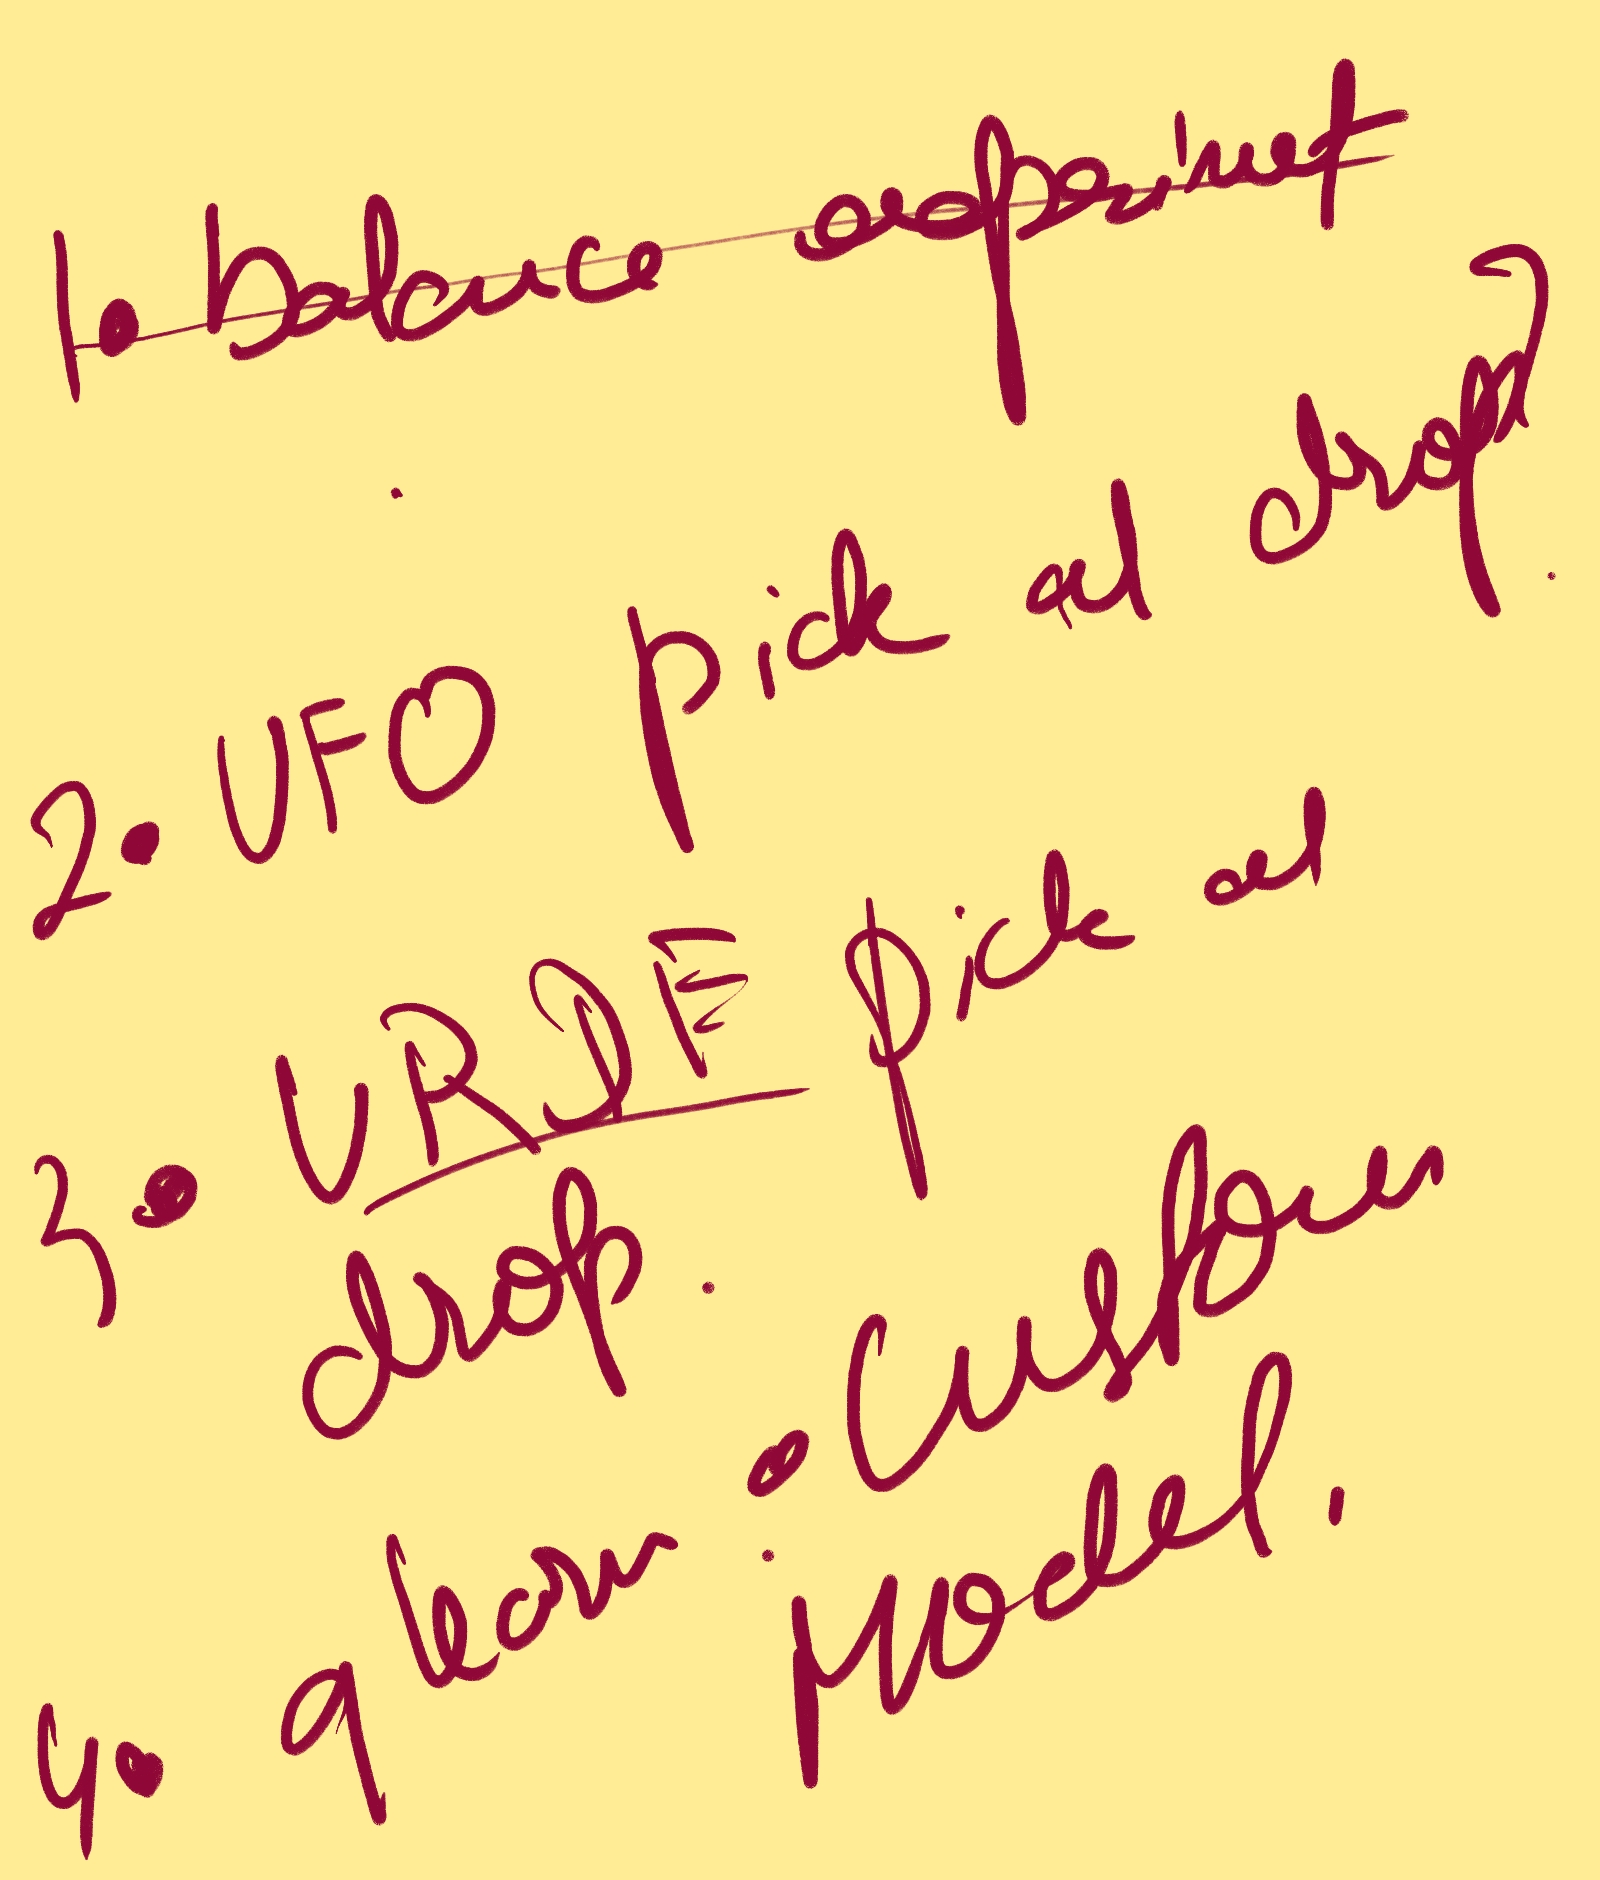 1. balance experimet
2. UFO pick ad drop
3. URDF pick ad
drop.
4. q learn . Custom
Model.